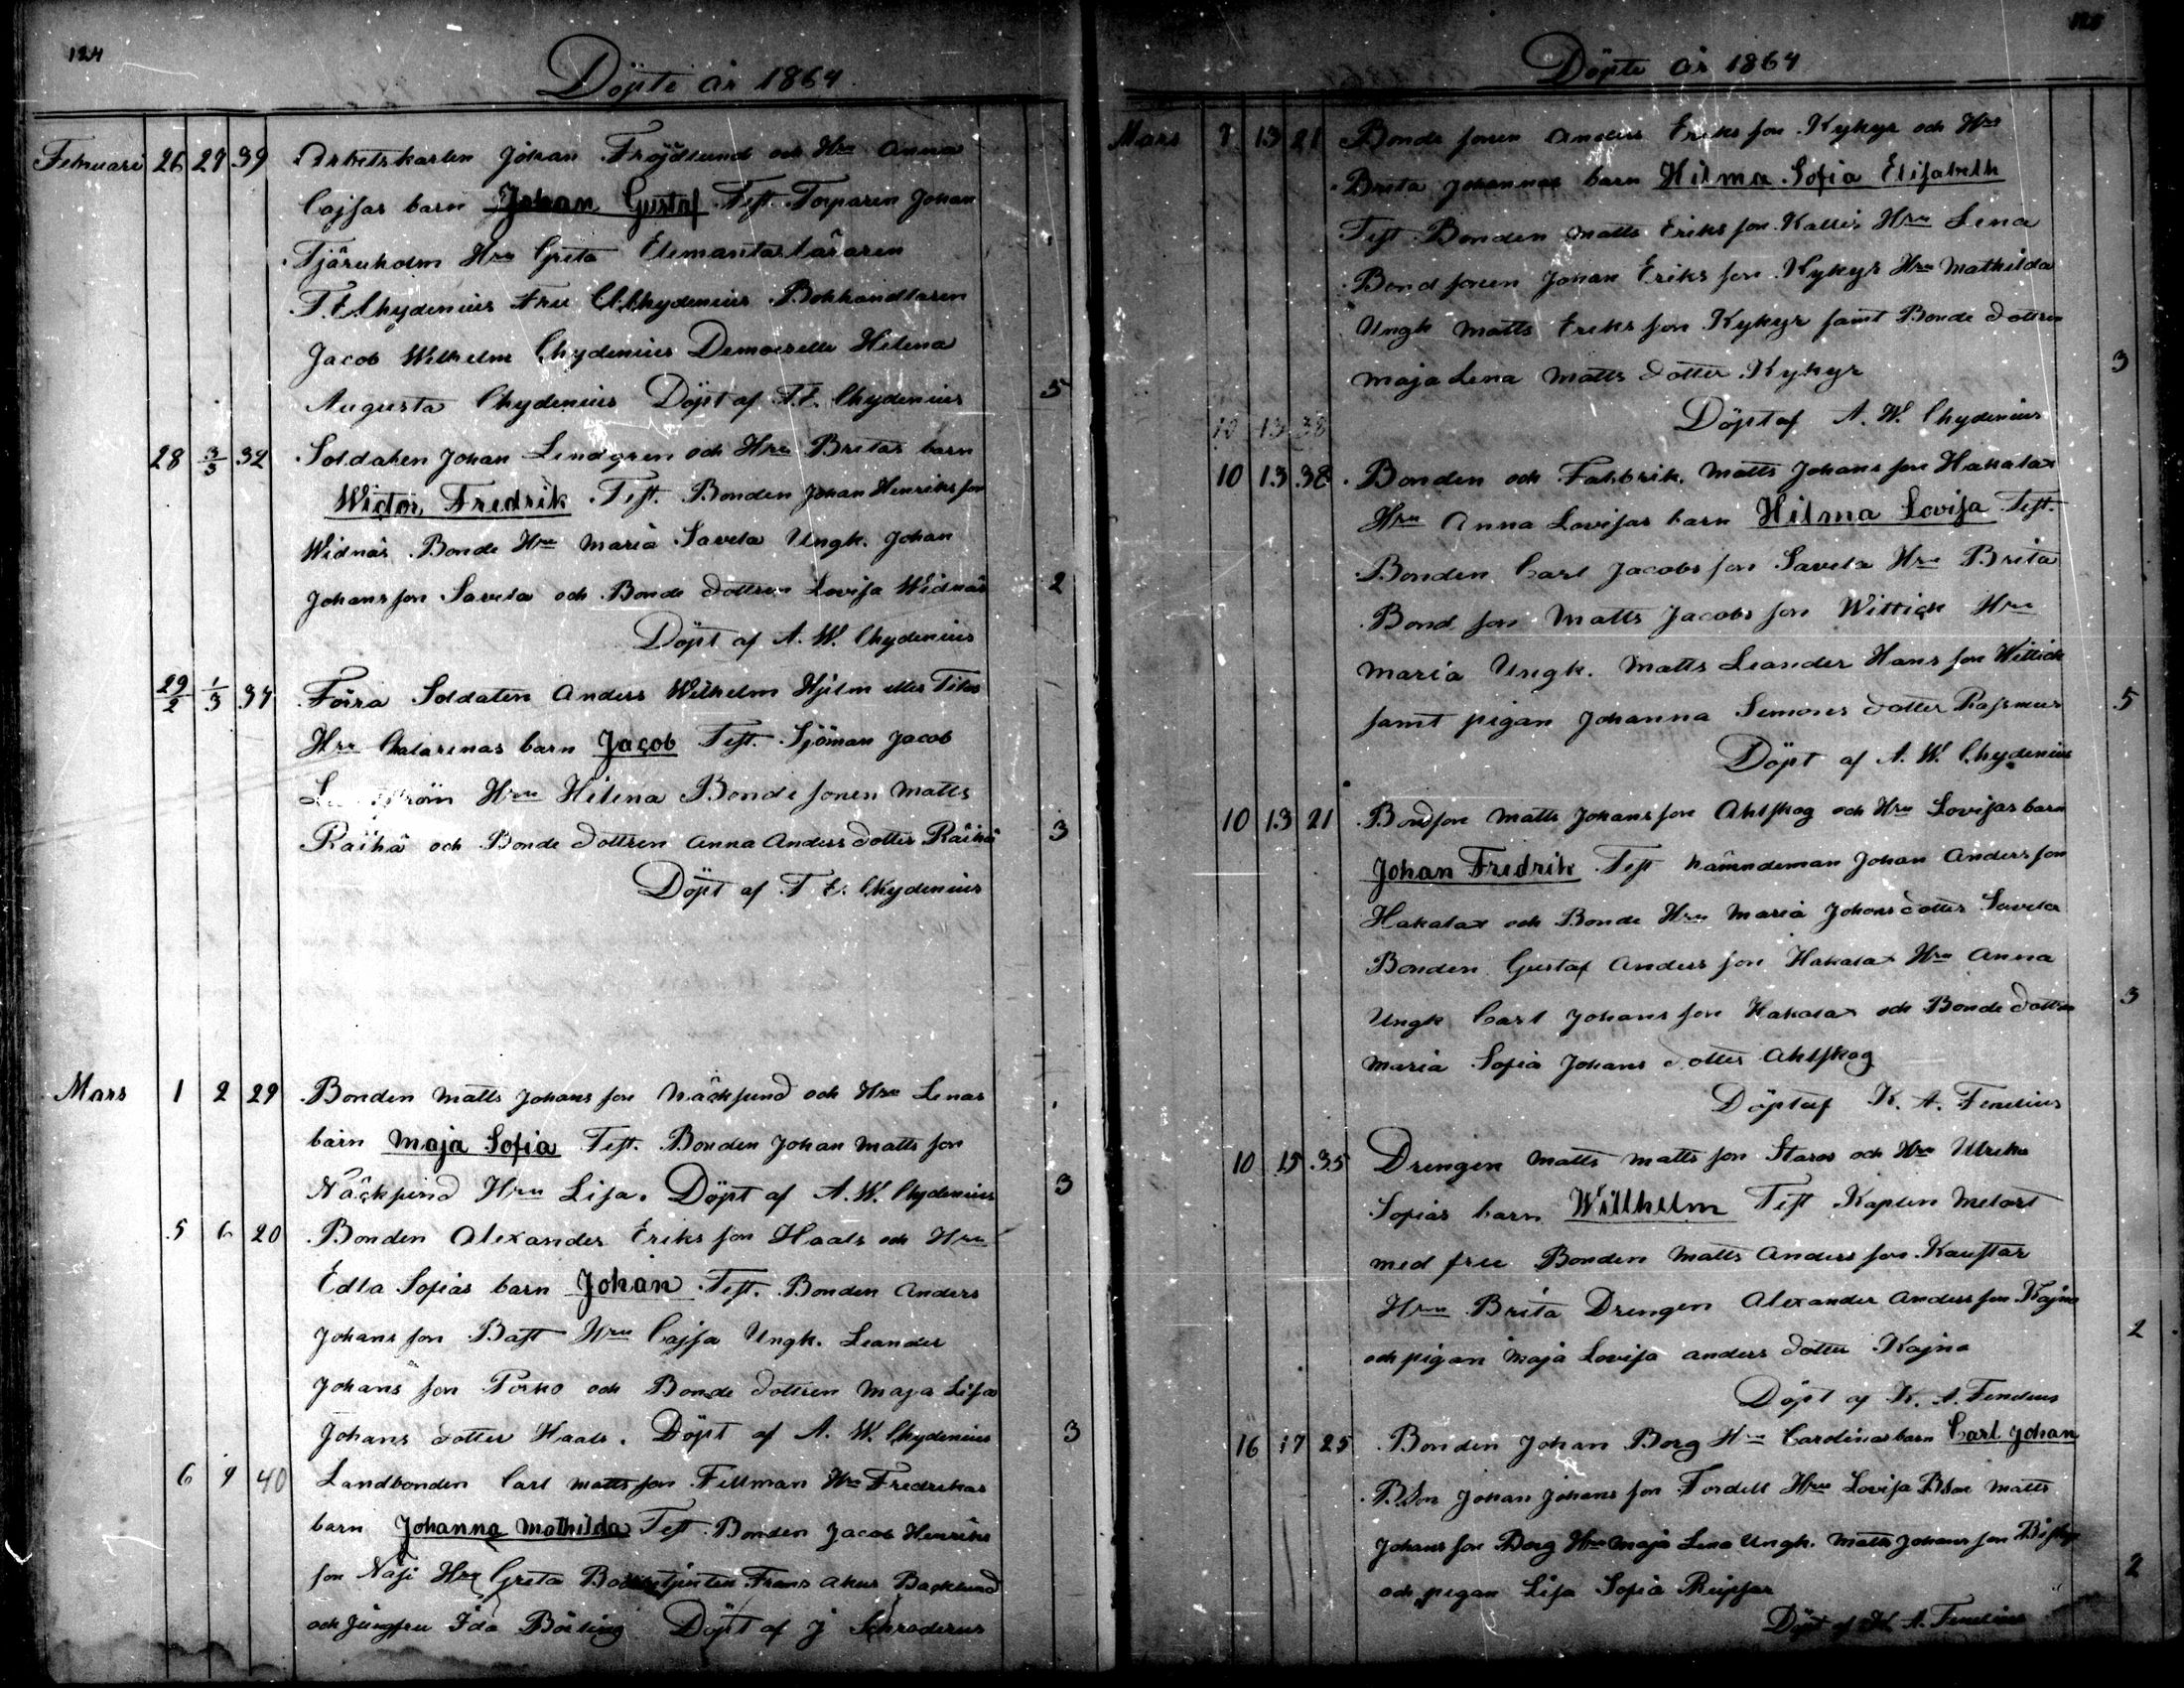 124
Döpte år 1864.
Februari 26 27 39 Arbetskarlen Johan Fröjdlund och Hru Anna
Cajsas barn Johan Gustaf Test. Torparen Johan
Tjäruholm Hru Greta Elemantarläraren
T. E. Chydenius Fru Chydenius Bokhandlaren
Jacob Wilhelm Chydenius Demoiselle Helena
Augusta Chydenius Döpt af T. E. Chydenius 5
28 3/3 32 Soldaten Johan Lindgren och Hru Britas barn
Wictor Fredrik Test. Bonden Johan Henriksson
Widnäs Bonde Hru Maria Savela Ungk. Johan
Johansson Savela och Bonde dottren Lovisa Widnäs 2
Döpt af A. W. Chydenius
29/2 1/3 37 Förra Soldaten Anders Wilhelm Hjelm eller
Hru Catarinas barn Jacob Test. Sjöman Jacob
Hru Helena Bonde sonen Matts
Räihä och Bonde dottren Anna Anders dotter Räihä 3
Döpt af T. E. Chydenius
Mars 1 2 29 Bonden Matts Johans son Näcksund och Hru Lenas
barn Maja Sofia Test. Bonden Johan Matts son
Näcksund Hru Lisa. Döpt af A. W. Chydenius 3
5 6 20 Bonden Alexander Eriks son Haals och Hru
Edla Sofias barn Johan Test. Bonden Anders
Johans son Bast Hru Cajsa Ungk. Leander
Johans son Porko och Bonde dottren Maja Lisa
Johans dotter Haals. Döpt af A. W. Chydenius 3
6 9 40 Landbonden Carl Matts son Fellman Hru Fredrikas
barn Johanna Mathilda Test. Bonden Jacob Henriks
son Näsi Hru Greta Frans Backlund
och Jungfru Ida Döpt af J Schroderus
Döpte år 1864
Mars 9 13 21 Bonde sonen Anders Eriks son Kykyr och Hru
Brita Johannas barn Hilma Sofia Elisabeth
Test. Bonden Matts Eriks son Kallis Hru Lena
Bond sonen Johan Eriks son Kykyr Hru Mathilda
Ungk Matts Eriks son Kykyr samt Bonde dottren
Maja Lena Matts dotter Kykyr 3
10 13 38 Döpt af A. W. Chydenius
10 13 38 Bonden och Fabbrik. Matts Johans son Hakalax
Hru Anna Lovisas barn Hilma Lovisa Test.
Bonden Carl Jacobs son Savela Hru Brita
Bond son Matts Jacobs son Wittick Hru
Maria Ungk. Matts Leander Hans son Wittick
samt pigan Johanna Simons dotter Rasmus 5
Döpt af A. W. Chydenius
10 13 21 Bondson Matts Johans son Ahlskog och Hru Lovisas barn
Johan Fredrik Test Nämndeman Johan Anders son
Hakalax och Bonde Hru Maria Johans dotter Savela
Bonden Gustaf Anders son Hakalax Hru Anna
Ungk Carl Johans son Hakalax och Bonde dottren 3
Maria Sofia Johans dotter Ahlskog
Döpt af K. A. Fenelius
10 15 35 Drengen Matts Matts son Staros och Hru Ulrika
Sofias barn Willhelm Test Kapten Melart
med fru Bonden Matts Anders son Kaustar
Hru Brita Drengen Alexander Anders son Kajna
och pigan Maja Lovisa Anders dotter Kajna 2
Döpt af K. A. Fenelius
16 17 25 Bonden Johan Borg Hru Carolinas barn Carl Johan
BSon Johan Johans son Fordell Hru Lovisa BSon Matts
Johans son Borg Hru Maja Lena Ungk. Matts Johans son
och pigan Lisa Sofia 2
Döpt af K. A. Fenelius